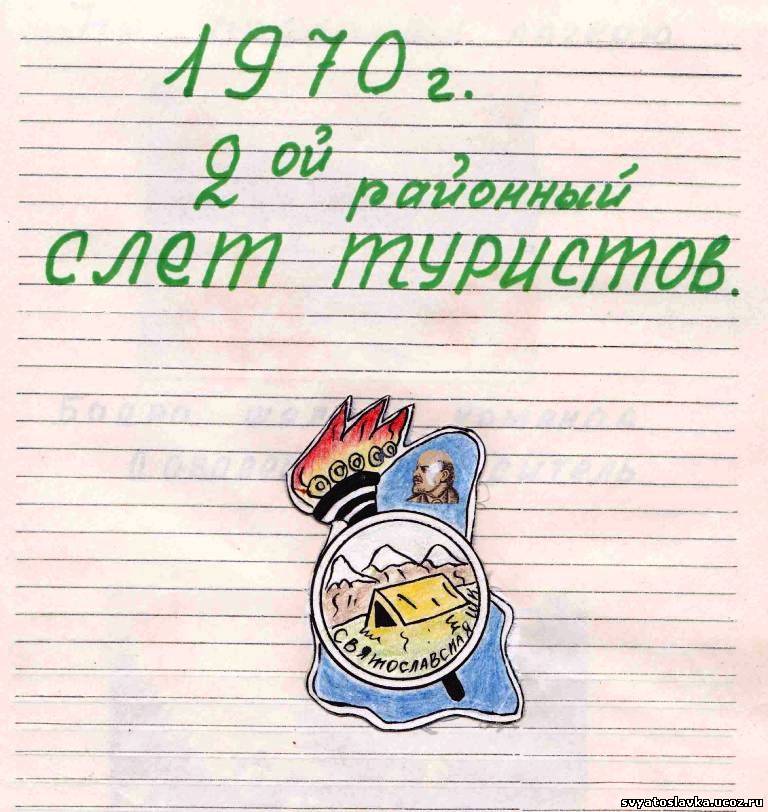 1970 г.
2 ой районный
слет туристов.
СВЯТОСЛАВСКАЯ
svyatoslavka.ucoz.ru